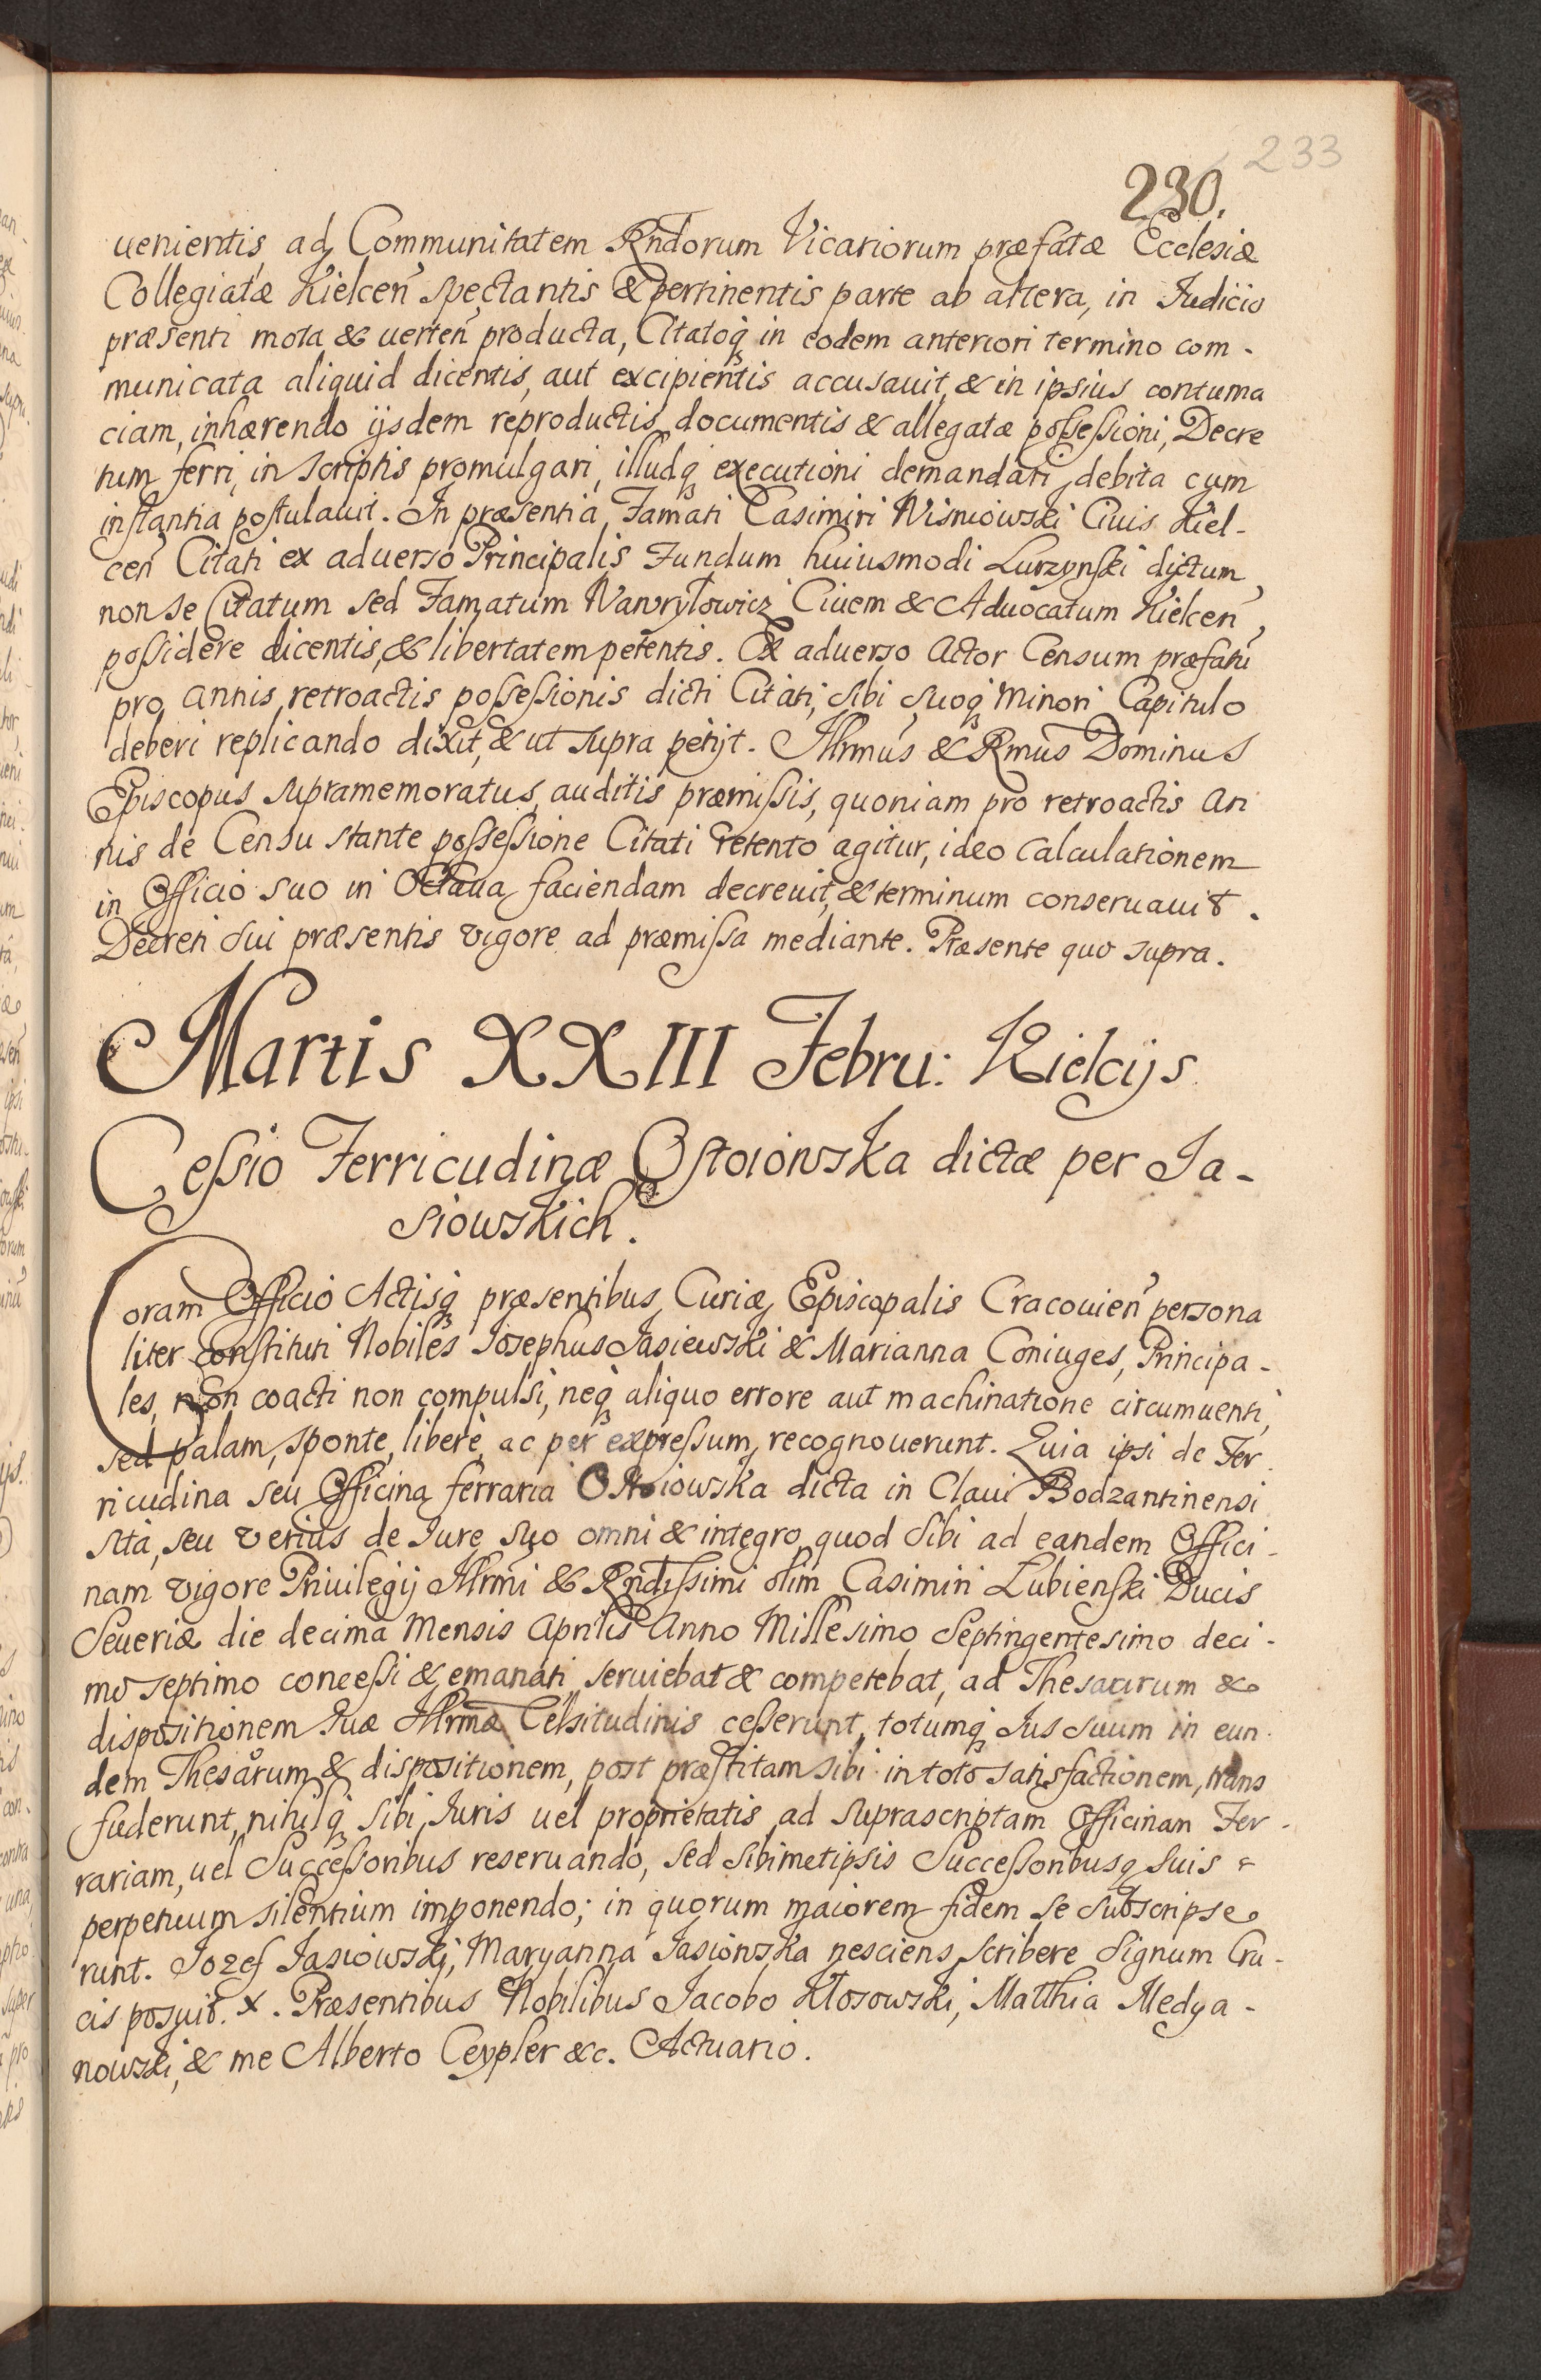 233
230.
uenientis ad Communitatem Rndorum Vicariorum præfatæ Ecclesiæ
Collegiatæ Kielcen spectantis & pertinentis parte ab altera, in Iudicio
præsenti mota & uerten producta, Citatoq in eodem anteriori termino com-
municata aliquid dicentis, aut excipientis accusauit, & in ipsius contuma
ciam, inhærendo ijsdem reproductis documentis & allegatæ possessioni, Decre
tum ferri, in scriptis promulgari, illudq executioni demandari, debita cum
instantia postulauit. In præsentia Famati Casimiri Wisniowski Ciuis Kiel-
cen Citati ex aduerso Principalis Fundum huiusmodi Lurzynski dictum,
non se Citatum sed Famatum Wawrylowicz Ciuem & Aduocatum Kielcen,
possidere dicentis, & libertatem petentis. Ex aduerso Actor Censum præfatu
pro annis retroactis possessionis dicti Citati, sibi suoq Minori Capitulo
deberi replicando dixit, & ut supra petijt. Illrmus & Rmus Dominus
Episcopus supramemoratus, auditis præmissis, quoniam pro retroactis an
nis de Censu stante possessione Citati retento agitur, ideo calculationem
in Officio suo in Octaua faciendam decreuit, & terminum conseruauit.
Decreti sui præsentis vigore ad præmissa mediante. Præsente quo supra.
Martis XXIII Febru: Kielcijs.
Cessio Ferricudinæ Ostoiowska dictæ per Ia-
siowskich.
Coram Officio Actisq præsentibus Curiæ Episcopalis Cracouien persona
liter constituti Nobiles Iosephus Jasiewski & Marianna Coniuges, Principa-
les, non coacti non compulsi, neq aliquo errore aut machinatione circumuenti,
sed palam, sponte, liberè, ac per expressum recognouerunt. Quia ipsi de Fer
ricudina seu Officina ferraria Ostoiowska dicta in Claui Bodzantinensi
sita, seu verius de Iure suo omni & integro quod sibi ad eandem Offici-
nam vigore Priuilegij Illrmi & Rndissimi olim Casimiri Lubienski Ducis
Seueriæ die decima Mensis Aprilis Anno Millesimo Septingentesimo deci-
mo septimo concessi & emanati seruiebat & competebat, ad Thesaurum &
dispositionem suæ Illrmæ Celsitudinis cesserunt, totumq Ius suum in eun
dem Thesarum & dispositionem, post præstitam sibi in toto satisfactionem, trans
fuderunt, nihilq sibi Iuris uel proprietatis ad suprascriptam Officinam Fer-
rariam, uel Successoribus reseruando, sed sibimetipsis Successoribusq suis
perpetuum silentium imponendo; in quorum maiorem fidem se subscripse
runt. Jozef Jasiowski, Maryanna Jasionska nesciens scribere Signum Cru-
cis posuit. x. Præsentibus Nobilibus Jacobo Kłosowski, Matthia Medya-
nowski, & me Alberto Ceypler &c. Actuario.